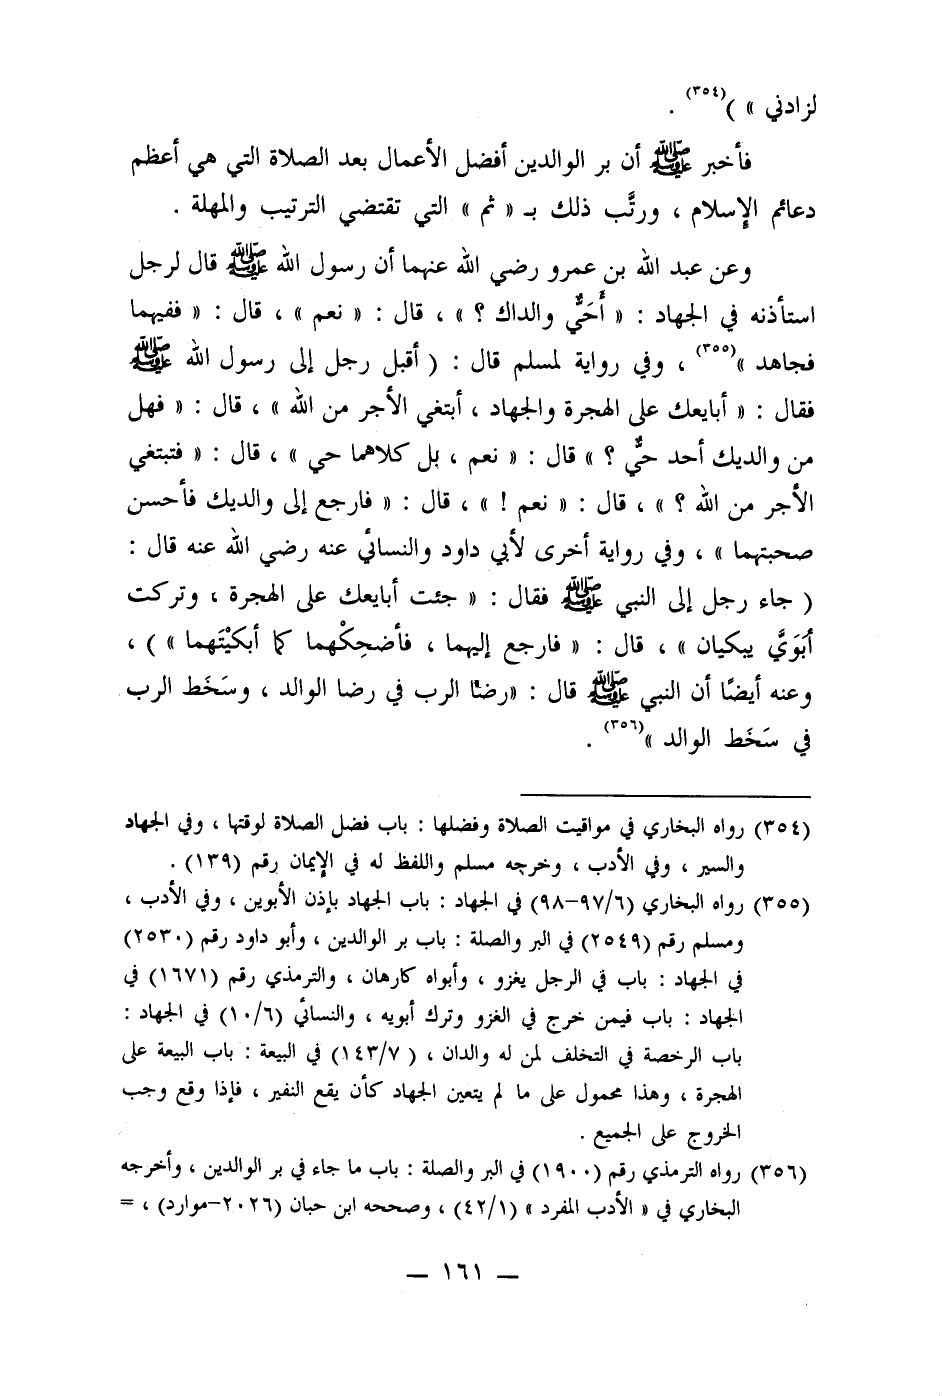 لزادني » )(٣٥٤) .
فأخبر ﷺ أن بر الوالدين أفضل الأعمال بعد الصلاة التي هي أعظم
دعائم الإسلام ، ورتَّب ذلك بـ « ثم » التي تقتضي الترتيب والمهلة .
وعن عبد الله بن عمرو رضي الله عنهما أن رسول الله ﷺ قال لرجل
استأذنه في الجهاد : « أَحَيٌّ والداك ؟ » ، قال : « نعم » ، قال : « ففيهما
فجاهد »(٣٥٥) ، وفي رواية لمسلم قال : ( أقبل رجل إلى رسول الله ﷺ
فقال : « أبايعك على الهجرة والجهاد ، أبتغي الأجر من الله » ، قال : « فهل
من والديك أحد حيٌّ ؟ » قال : « نعم ، بل كلاهما حي » ، قال : « فتبتغي
الأجر من الله ؟ » ، قال : « نعم ! » ، قال : « فارجع إلى والديك فأحسن
صحبتهما » ، وفي رواية أخرى لأبي داود والنسائي عنه رضي الله عنه قال :
( جاء رجل إلى النبي ﷺ فقال : « جئت أبايعك على الهجرة ، وتركت
أبَوَيَّ يبكيان » ، قال : « فارجع إليهما ، فأضحِكْهما كما أبكيْتَهما » ) ،
وعنه أيضًا أن النبي ﷺ قال : «رضا الرب في رضا الوالد ، وسَخَط الرب
في سَخَط الوالد »(٣٥٦) .
(٣٥٤) رواه البخاري في مواقيت الصلاة وفضلها : باب فضل الصلاة لوقتها ، وفي الجهاد
والسير ، وفي الأدب ، وخرجه مسلم واللفظ له في الإيمان رقم (١٣٩) .
(٣٥٥) رواه البخاري (٩٧/٦–٩٨) في الجهاد : باب الجهاد بإذن الأبوين ، وفي الأدب ،
ومسلم رقم (٢٥٤٩) في البر والصلة : باب بر الوالدين ، وأبو داود رقم (٢٥٣٠)
في الجهاد : باب في الرجل يغزو ، وأبواه كارهان ، والترمذي رقم (١٦٧١) في
الجهاد : باب فيمن خرج في الغزو وترك أبويه ، والنسائي (١٠/٦) في الجهاد :
باب الرخصة في التخلف لمن له والدان ، (١٤٣/٧) في البيعة : باب البيعة على
الهجرة ، وهذا محمول على ما لم يتعين الجهاد كأن يقع النفير ، فإذا وقع وجب
الخروج على الجميع .
(٣٥٦) رواه الترمذي رقم (١٩٠٠) في البر والصلة : باب ما جاء في بر الوالدين ، وأخرجه
البخاري في « الأدب المفرد » (٤٢/١) ، وصححه ابن حبان (٢٠٢٦–موارد) ، =
— ١٦١ —